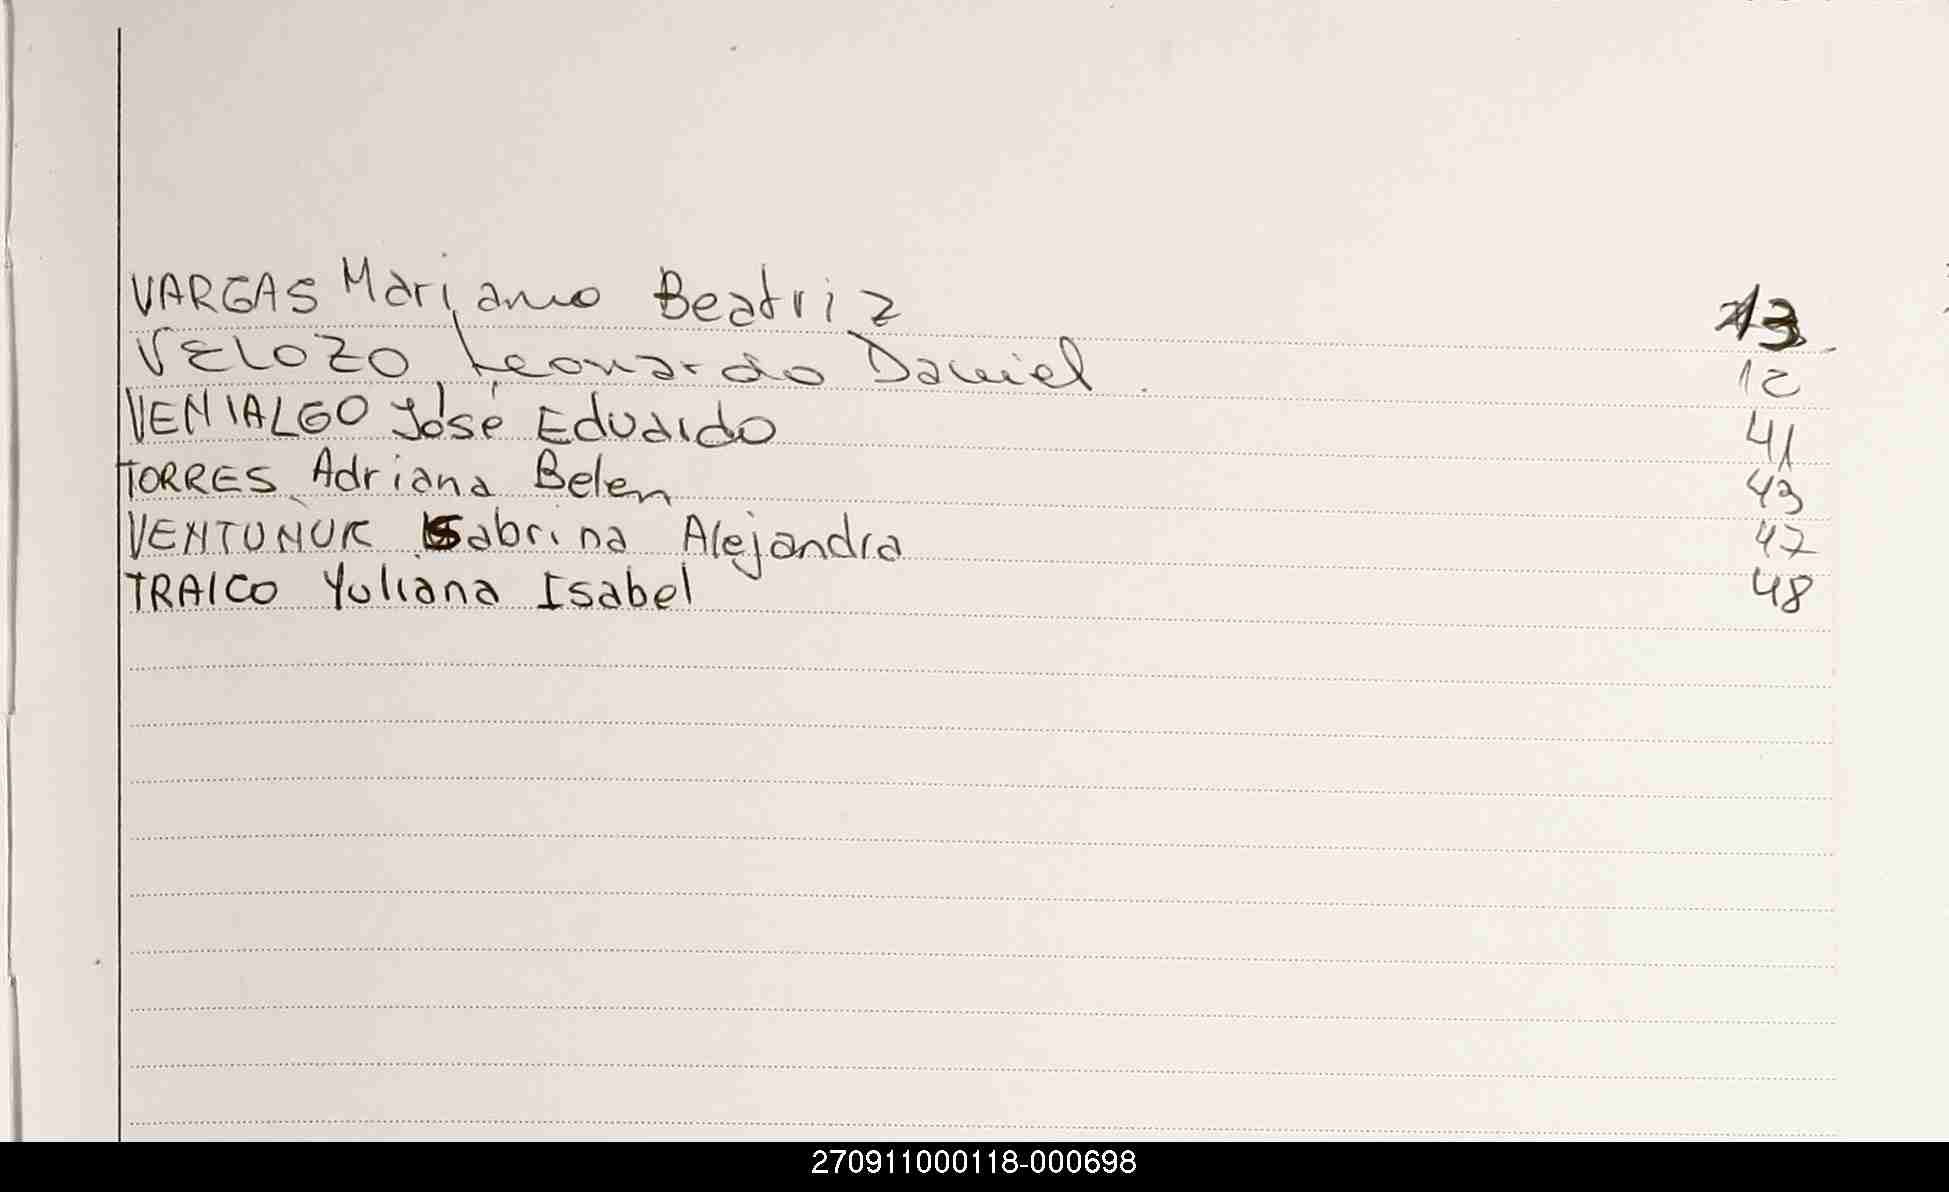 VARGAS Mariano Beatriz 13
VELOZO Leonardo Daniel 12
VENIALGO José Eduardo 41
TORRES Adriana Belen 43
VENTUNUK Sabrina Alejandra 47
TRAICO Yuliana Isabel 48
270911000118-000698